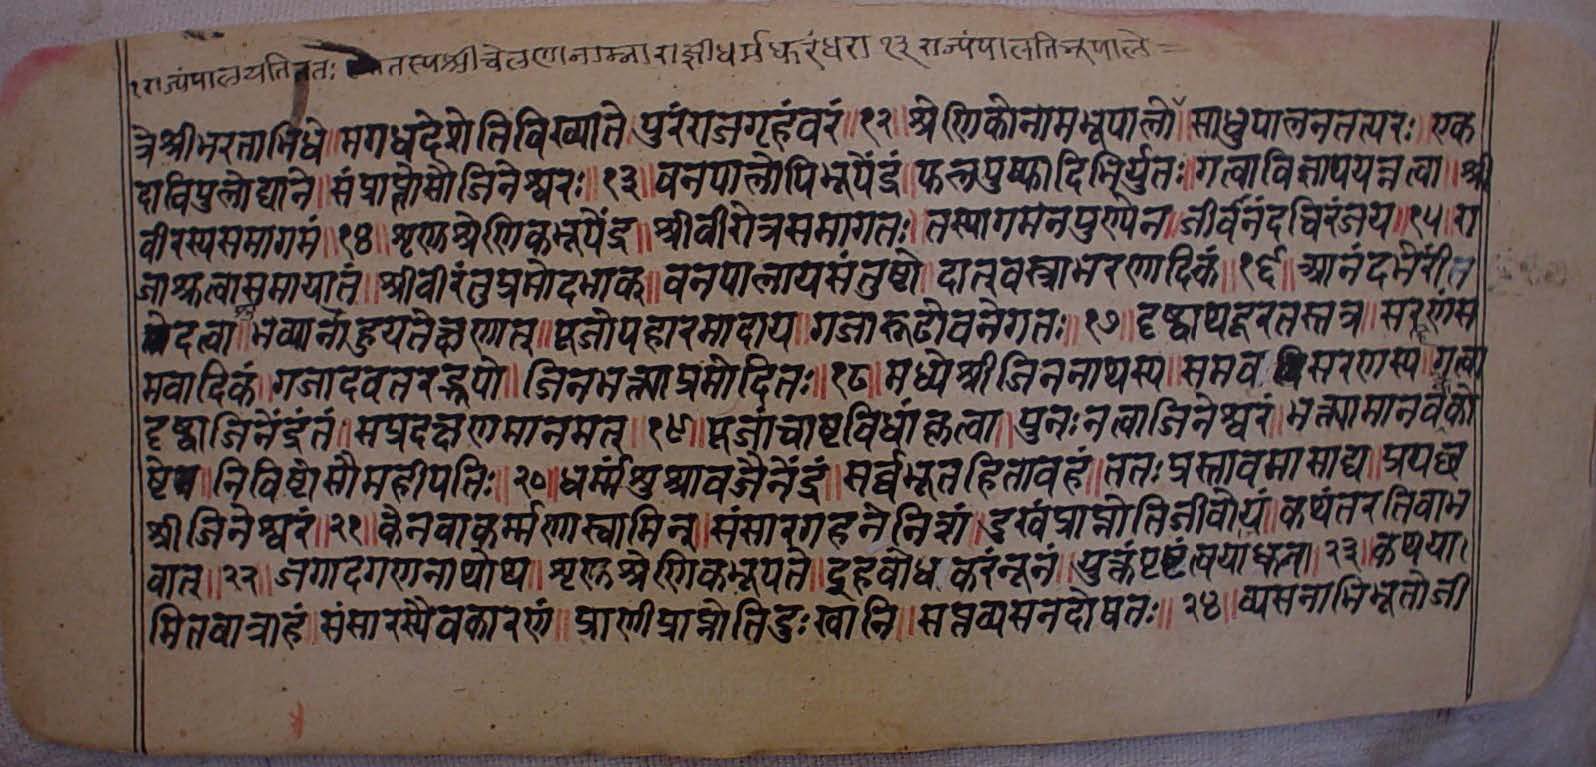 १राज्यंपालयतिततः तस्यश्रीचेलणानाम्नाराज्ञीधर्मधुरंधरा १३ राज्यंपालतिभूपाले=
त्रेश्रीभरताभिधे॥मगधदेशेतिविख्याते॥पुरंराजगृहंवरं॥१२॥श्रेणिकोनामभूपालो॥साधुपालनतत्परः॥एक
दाविपुलोद्याने॥संप्राप्तोसौजिनेश्वरः॥१३॥वनपालोपिभूपेंद्रं॥फलपुष्फादिभिर्युतः॥गत्वाविज्ञापयन्नत्वा॥श्री
वीरस्यसमागमं॥१४॥शृणुश्रेणिकभूपेंद्र॥श्रीवीरोत्रसमागतः॥तस्यागमनपुण्येन॥जीर्वनंदच्चिरंजय॥१५॥रा
जाश्रुत्वासमायातं॥श्रीवीरंतुप्रमोदभाक्॥वनपालायसंतुष्टो॥दात्वस्त्राभरणादिकं॥१६॥आनंदभेरीत
दत्वा॥भव्यानांहुयतेक्षणात्॥पूजोपहारमादाय॥गजारूढोवनेगतः॥१७॥दृष्ट्वाथदूरतस्तत्र॥सरणंस
मवादिकं॥गजादवतरद्भूपो॥जिनभक्त्याप्रमोदितः॥१८॥मध्येश्रीजिननाथस्य॥समव सरणस्य॥गत्वा
दृष्ट्वाजिनेंद्रंतं॥मप्रदक्षणमानमत्॥१९॥पूजांचाष्टविधांकृत्वा॥पुनःनत्वाजिनेश्वरं॥भक्त्यामानर्वको
ष्टेच॥निविष्टोसौमहीपतिः॥२०॥धर्म्मंशुश्रावजैनेंद्रं॥सर्वभूतहितावहं॥ततःप्रस्तावमासाद्य॥प्रयछ
श्रीजिनेश्वरं॥२१॥केनवाकर्म्मणास्वामिन्॥संसारगहनेनित्रां॥दुखंप्राप्नोतिजीवोयं॥कथंतरतिवाभ
वात्॥२२॥जगादगणनाथोथ॥शृणुश्रेणिकभूपते॥दृहबोधकरंनूनं॥युक्तंपृष्टंत्वयाधुना॥२३॥कथया।
मितवात्राहं॥संसारस्यैवकारणं॥प्राणीप्राप्नोतिदुःखानि॥सप्तव्यसनदोषतः॥२४॥व्यसनाभिभूतोजी